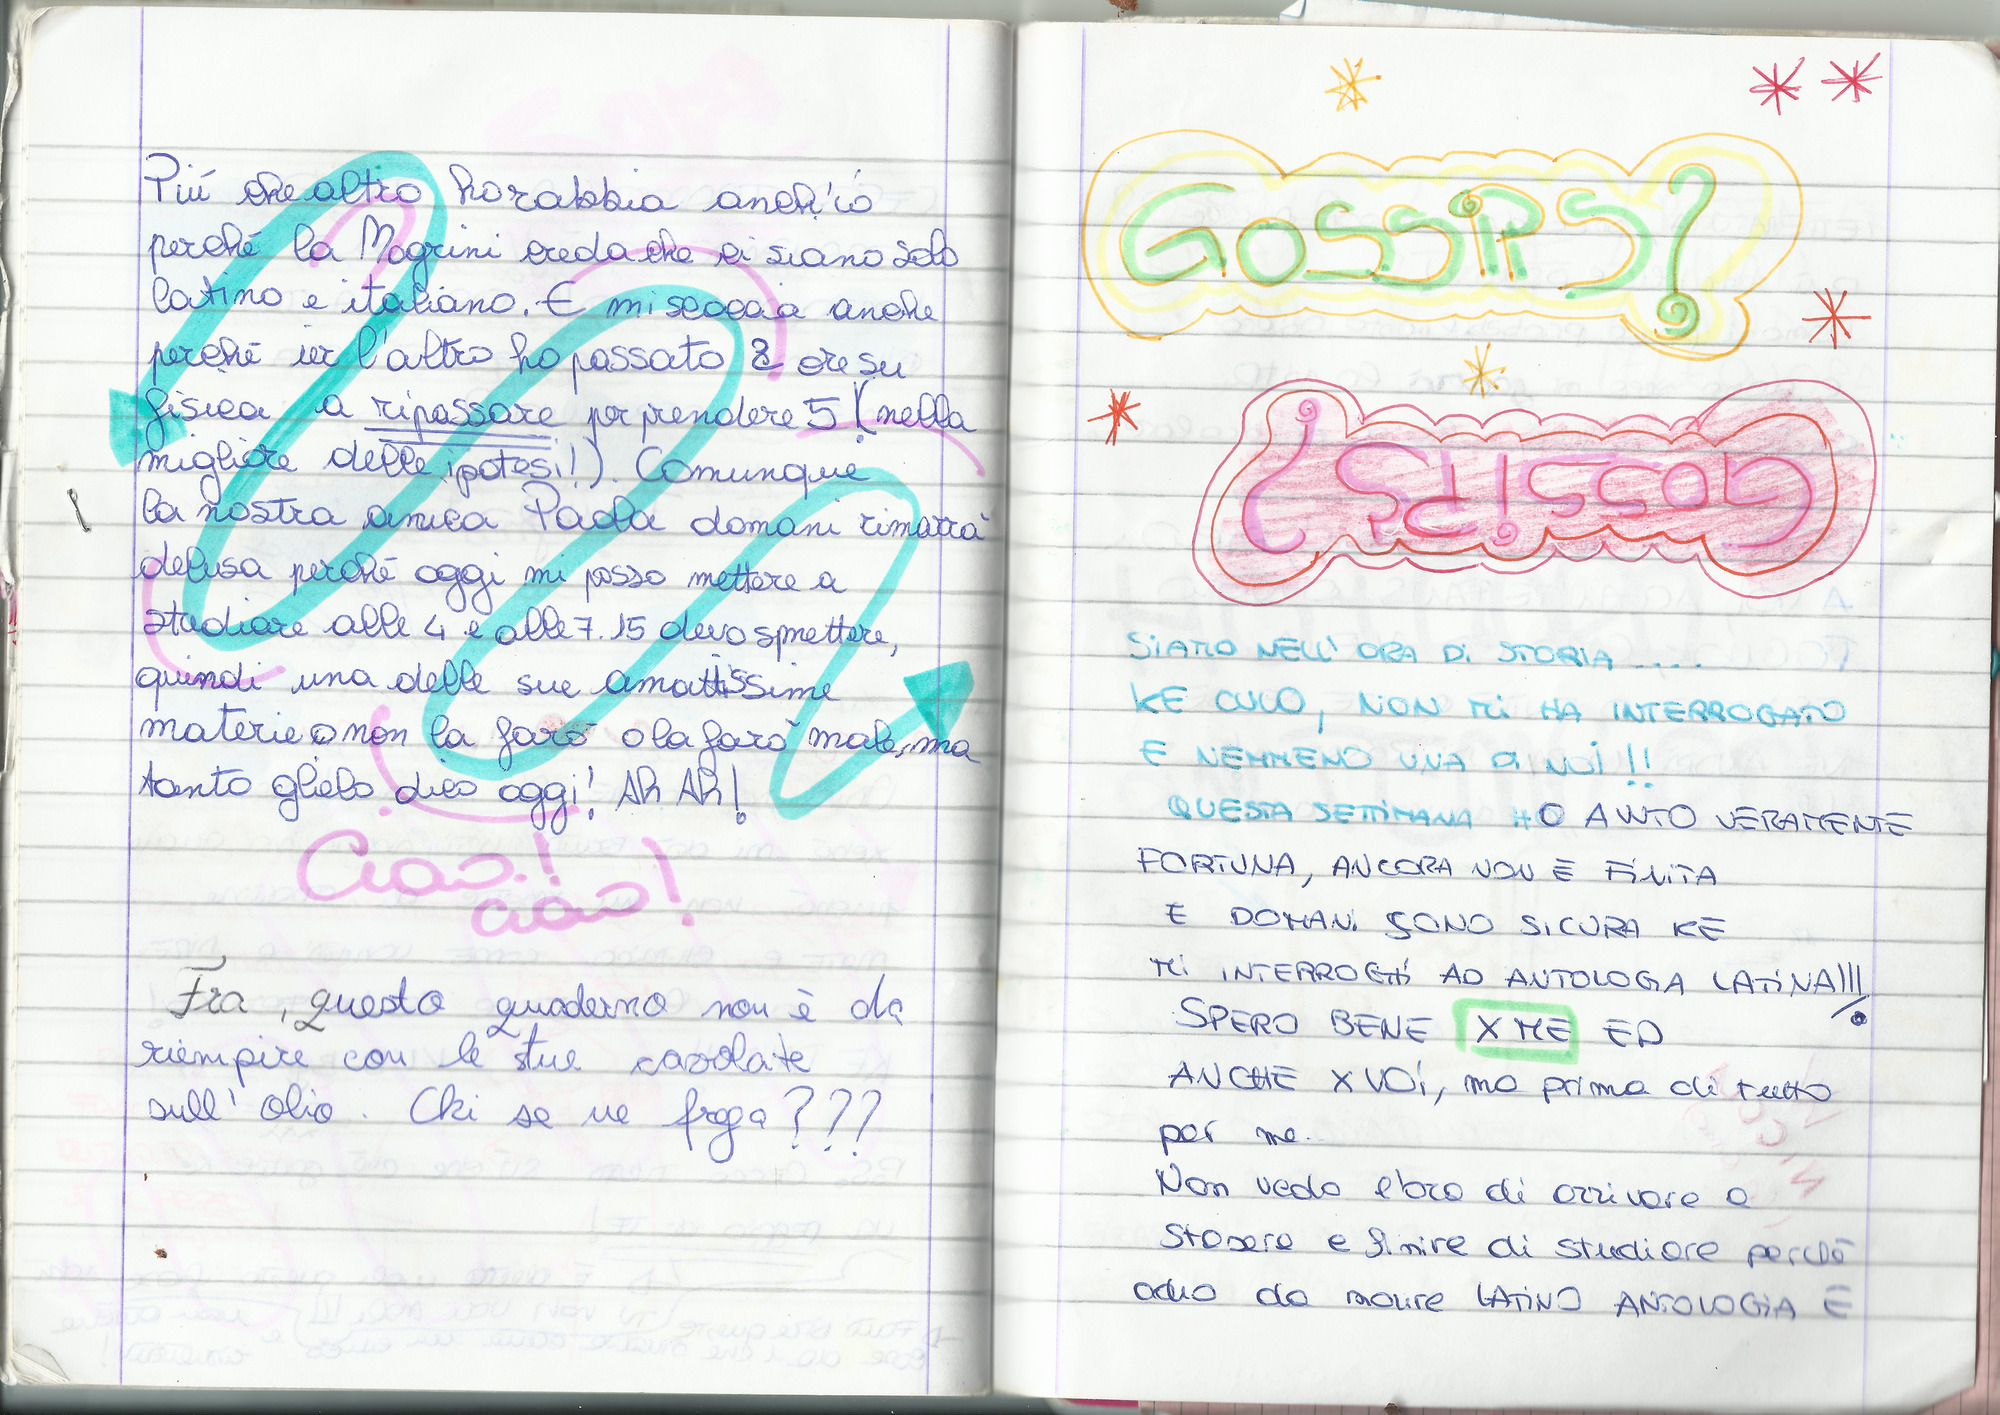 Più che altro ho rabbia anch'io
perché la Magrini creda che ci siano solo
latino e italiano. E mi scoccia anche
perché ier l'altro ho passato 2 ore su
fisica a ripassare per prendere 5 (nella
migliore delle ipotesi!). Comunque
la nostra amica Paola domani rimarrà
delusa perché oggi mi posso mettere a
studiare alle 4 e alle 7.15 devo smettere,
quindi una delle sue amatissime
materie o non la farò o la farò male, ma
tanto glielo dico oggi! Ah Ah!
Ciao!
ciao!
Fra, questo quaderno non è da
riempire con le tue cavolate
sull'olio. Chi se ne frega???
GOSSIPS?
GOSSIPS?
SiAMO NELL'ORA Di STORIA ....
KE CULO, NON Mi HA INTERROGATO
E NEMMENO UNA Di NOi!!
QUESTA SETTIMANA HO AVUTO VERAMENTE
FORTUNA, ANCORA NON È FiNiTA
E DOMANi SONO SiCURA KE
Mi INTERROGHi AD ANTOLOGIA LATiNA!!!
SPERO BENE X ME ED
ANCHE X VOi, ma prima di tutto
per me.
Non vedo l'ora di arrivare a
stasera e finire di studiare perché
odio da morire LATiNO ANTOLOGiA E